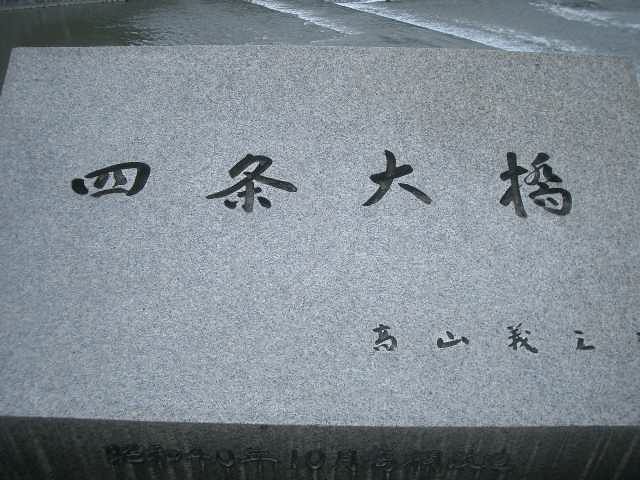 四条大橋
高山義三
昭和40年10月